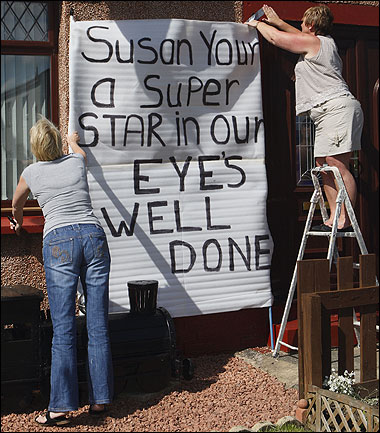 Susan Your
a Super
STAR in our
EYE'S
WELL
DONE